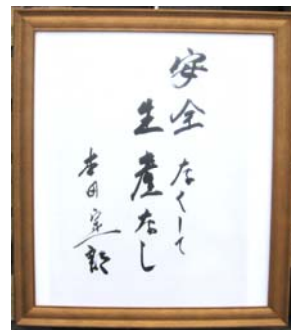 安全なくして
生産なし
本田宗一郎